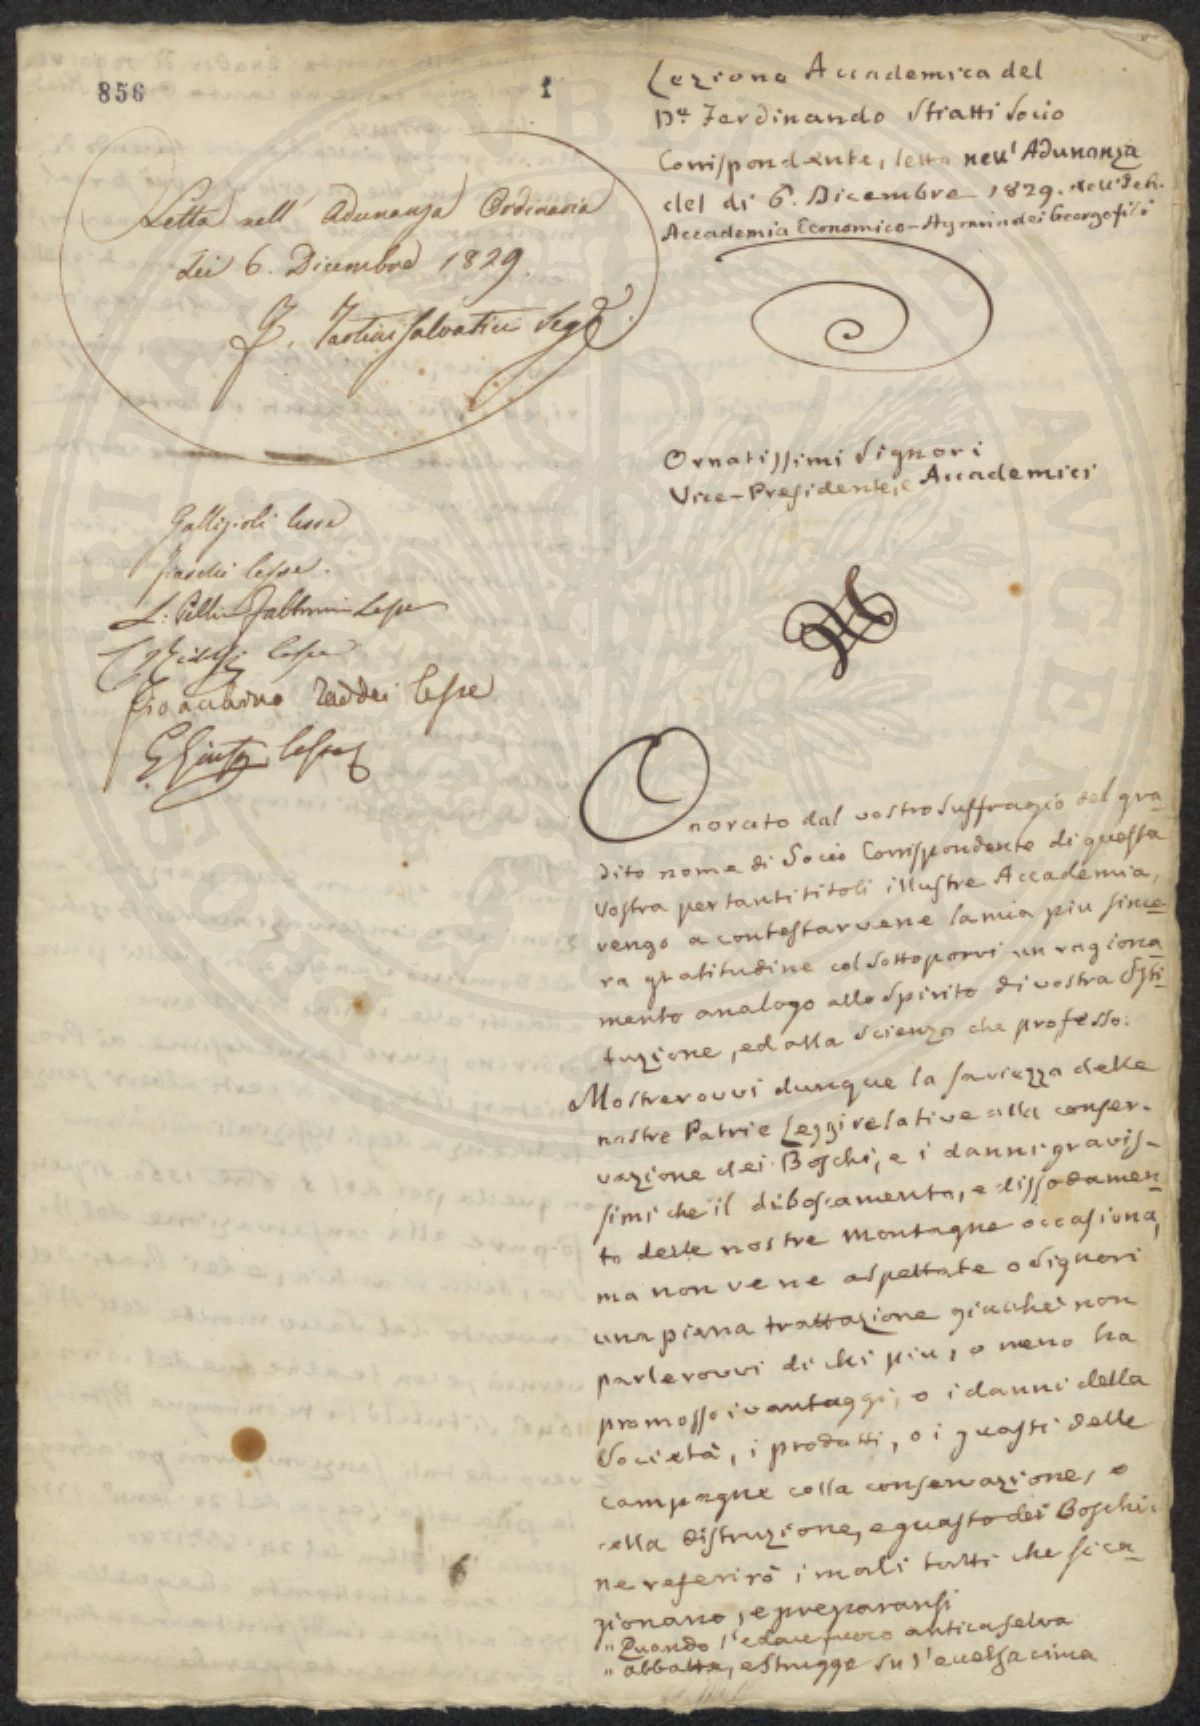 856
1
Lezione Accademica del
D.e Ferdinando Stratti Socio
Corrispondente, letta nell' Adunanza
del dì 6. Dicembre 1829. dell'
Accademia Economico-Agraria dei Georgofili
Letta nell' Adunanza Ordinaria
dei 6. Dicembre 1829.
Tartini Salvatici Seg.
Ornatissimi Signori
Vice-Presidente, e Accademici
Gallizioli lesse
lesse.
L: Pelli Fabbroni Lesse
lesse
Gioacchino Taddei lesse
G. Giusti lesse
Onorato dal vostro suffragio del gra-
dito nome di Socio Corrispondente di questa
Vostra per tanti titoli illustre Accademia,
vengo a contestarvene la mia piu since-
ra gratitudine col sottoporvi un ragiona-
mento analogo allo Spirito di vostra Isti-
tuzione, ed alla Scienza che professo.
Mostrerovvi dunque la saviezza delle
nostre Patrie Leggi relative alla conser-
vazione dei Boschi, e i danni gravis-
simi che il diboscamento, e dissodamen-
to delle nostre montagne occasiona,
ma non ve ne aspettate o Signori
una piena trattazione giacchè non
parlerovvi di chi piu, o meno ha
promosso i vantaggi, o i danni della
Società, i prodotti, o i guasti delle
campagne colla conservazione, o
colla distruzione, e guasto dei Boschi:
ne referirò i mali tutti che si ca-
gionano, e preparansi
" Quando l'edace fuoco antica selva
" abbatta, e strugge su l'eccelsa cima
6